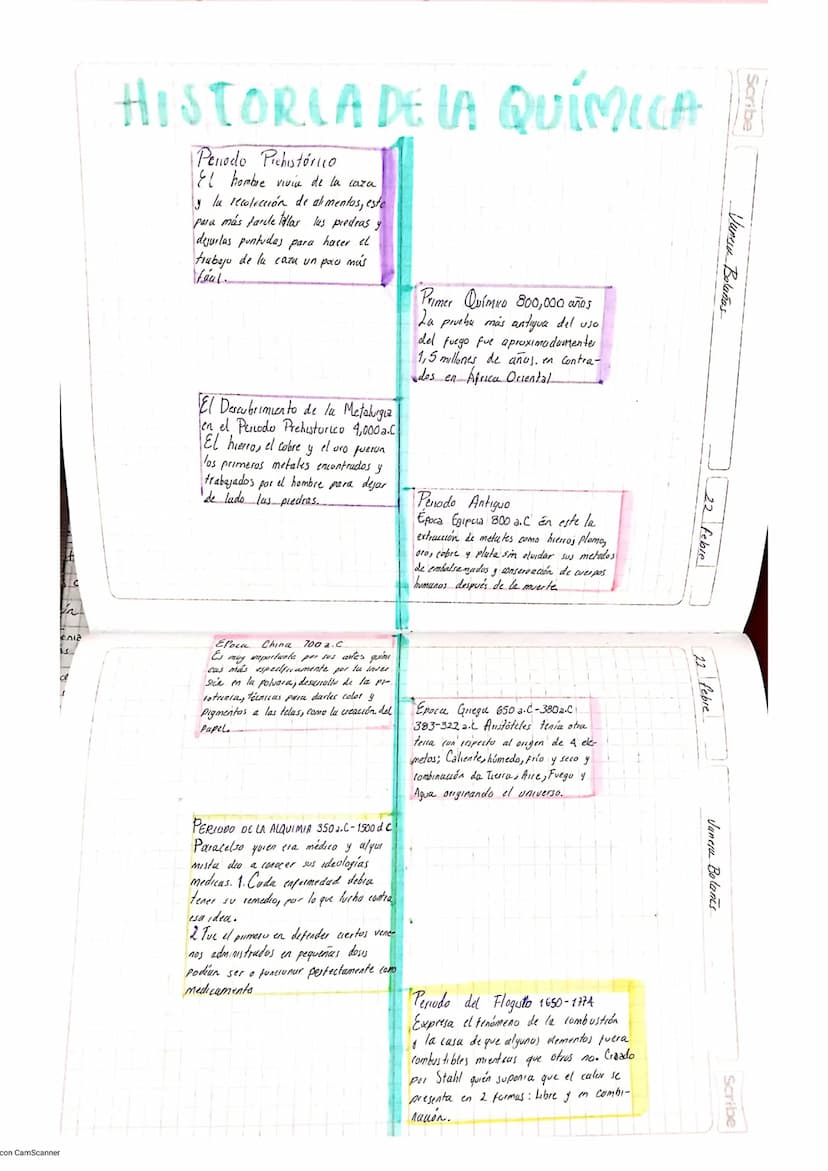 HISTORIA DE LA QUÍMICA
Scribe
Vanessa Bolaños
22 febre
Periodo Prehistórico
El hombre vivia de la caza
y la recolección de alimentos, este
para más tarde tallar las piedras y
dejarlas puntudas para hacer el
trabajo de la caza un poco más
fácil.
Primer Químico 800,000 años
La prueba más antigua del uso
del fuego fue aproximadamenter
1,5 millones de años. en contra-
dos en África Oriental
El Descubrimiento de la Metalurgia
en el Periodo Prehistorico 4,000 a.C
El hierro, el cobre y el oro fueron
los primeros metales encontrados y
trabajados por el hombre para dejar
de lado las piedras.
Periodo Antiguo
Época Egipcia 800 a.C En este la
extracción de metales como hierro, plomo,
oro, cobre y plata sin olvidar sus metodos
de embalsamados y conservación de cuerpos
humanos después de la muerte
Epoca China 700 a.C
Es muy importante por sus artes quími
cas más especificamente por la inver
sión en la polvora, desarrollo de la pi-
rotecnia, técnicas para darles color y
pigmentos a las telas, como la creación del
papel.
22 febre
Epoca Griega 650 a.C-380a.C
383-322 a.C Aristóteles tenía otra
teria con respecto al origen de 4 ele-
metos; Caliente, húmedo, frío y seco y
combinación da Tierra, Aire, Fuego y
Agua originando el universo.
PERIODO DE LA ALQUIMIA 350 a.C-1500 d C
Paracelso quien era médico y alqui
mista dio a conocer sus ideologías
medicas. 1. Cada enfermedad debia
tener su remedio, por lo que lucho contra
esa idea.
2 Fue el primero en defender ciertos vene-
nos administrados en pequeñas dosis
podian ser o funcionar perfectamente como
medicamento
Vanessa Bolaños
Periodo del Flogisto 1650-1774
Expresa el fenómeno de la combustión
y la casa de que algunos elementos fuera
combustibles mientras que otros no. Creado
por Stahl quién suponia que el calor se
presenta en 2 formas: Libre y en combi-
nación.
Scribe
con CamScanner